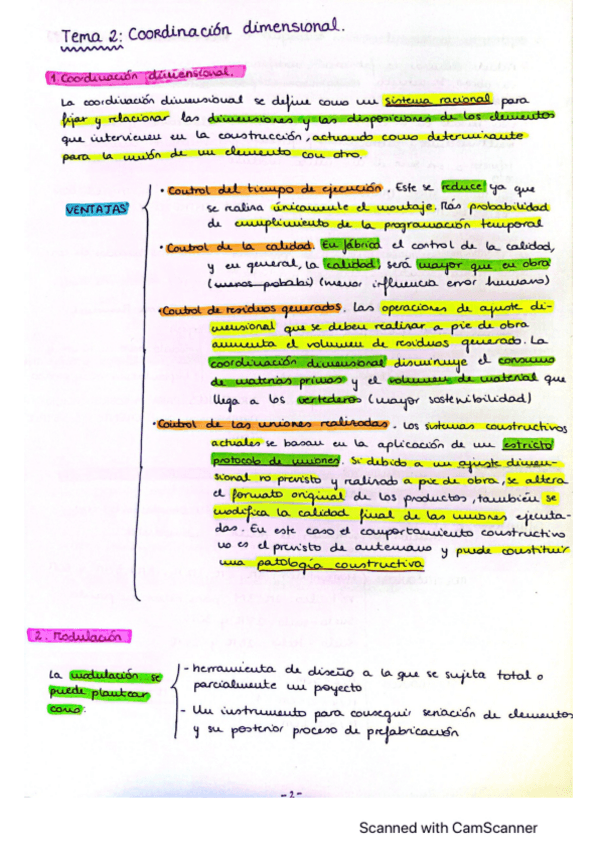 Tema 2: Coordinación dimensional.
1. Coordinación dimensional.
La coordinación dimensional se define como un sistema racional para
fijar y relacionar las dimensiones y las disposiciones de los elementos
que intervienen en la construcción, actuando como determinante
para la unión de un elemento con otro.
VENTAJAS
• Control del tiempo de ejecución. Este se reduce ya que
se realiza únicamente el montaje. Más probabilidad
de cumplimiento de la programación temporal
• Control de la calidad. En fábrica el control de la calidad,
y en general, la calidad será mayor que en obra
(menos probabi) (menor influencia error humano)
• Control de residuos generados. Las operaciones de ajuste di-
mensional que se deben realizar a pie de obra
aumenta el volumen de residuos generado. La
coordinación dimensional disminuye el consumo
de materias primas y el volumen de material que
llega a los vertederos (mayor sostenibilidad)
• Control de las uniones realizadas. Los sistemas constructivos
actuales se basan en la aplicación de un estricto
protocolo de uniones. Si debido a un ajuste dimen-
sional no previsto y realizado a pie de obra, se altera
el formato original de los productos, también se
modifica la calidad final de las uniones ejecuta-
das. En este caso el comportamiento constructivo
no es el previsto de antemano y puede constituir
una patología constructiva
2. Modulación
La modulación se
puede plantear
como:
- herramienta de diseño a la que se sujeta total o
parcialmente un poyecto
- Un instrumento para conseguir seriación de elementos
y su posterior proceso de prefabricación
-2-
Scanned with CamScanner